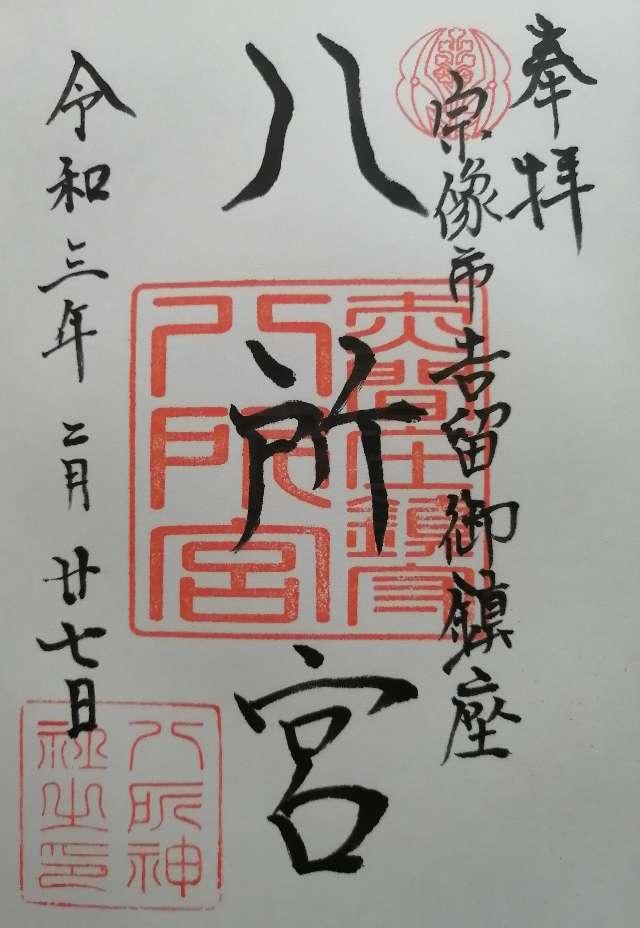 奉拝
宗像市吉留御鎮座
八所宮
令和三年二月廿七日
赤間庄鎮守
八所宮
八所神
社之印